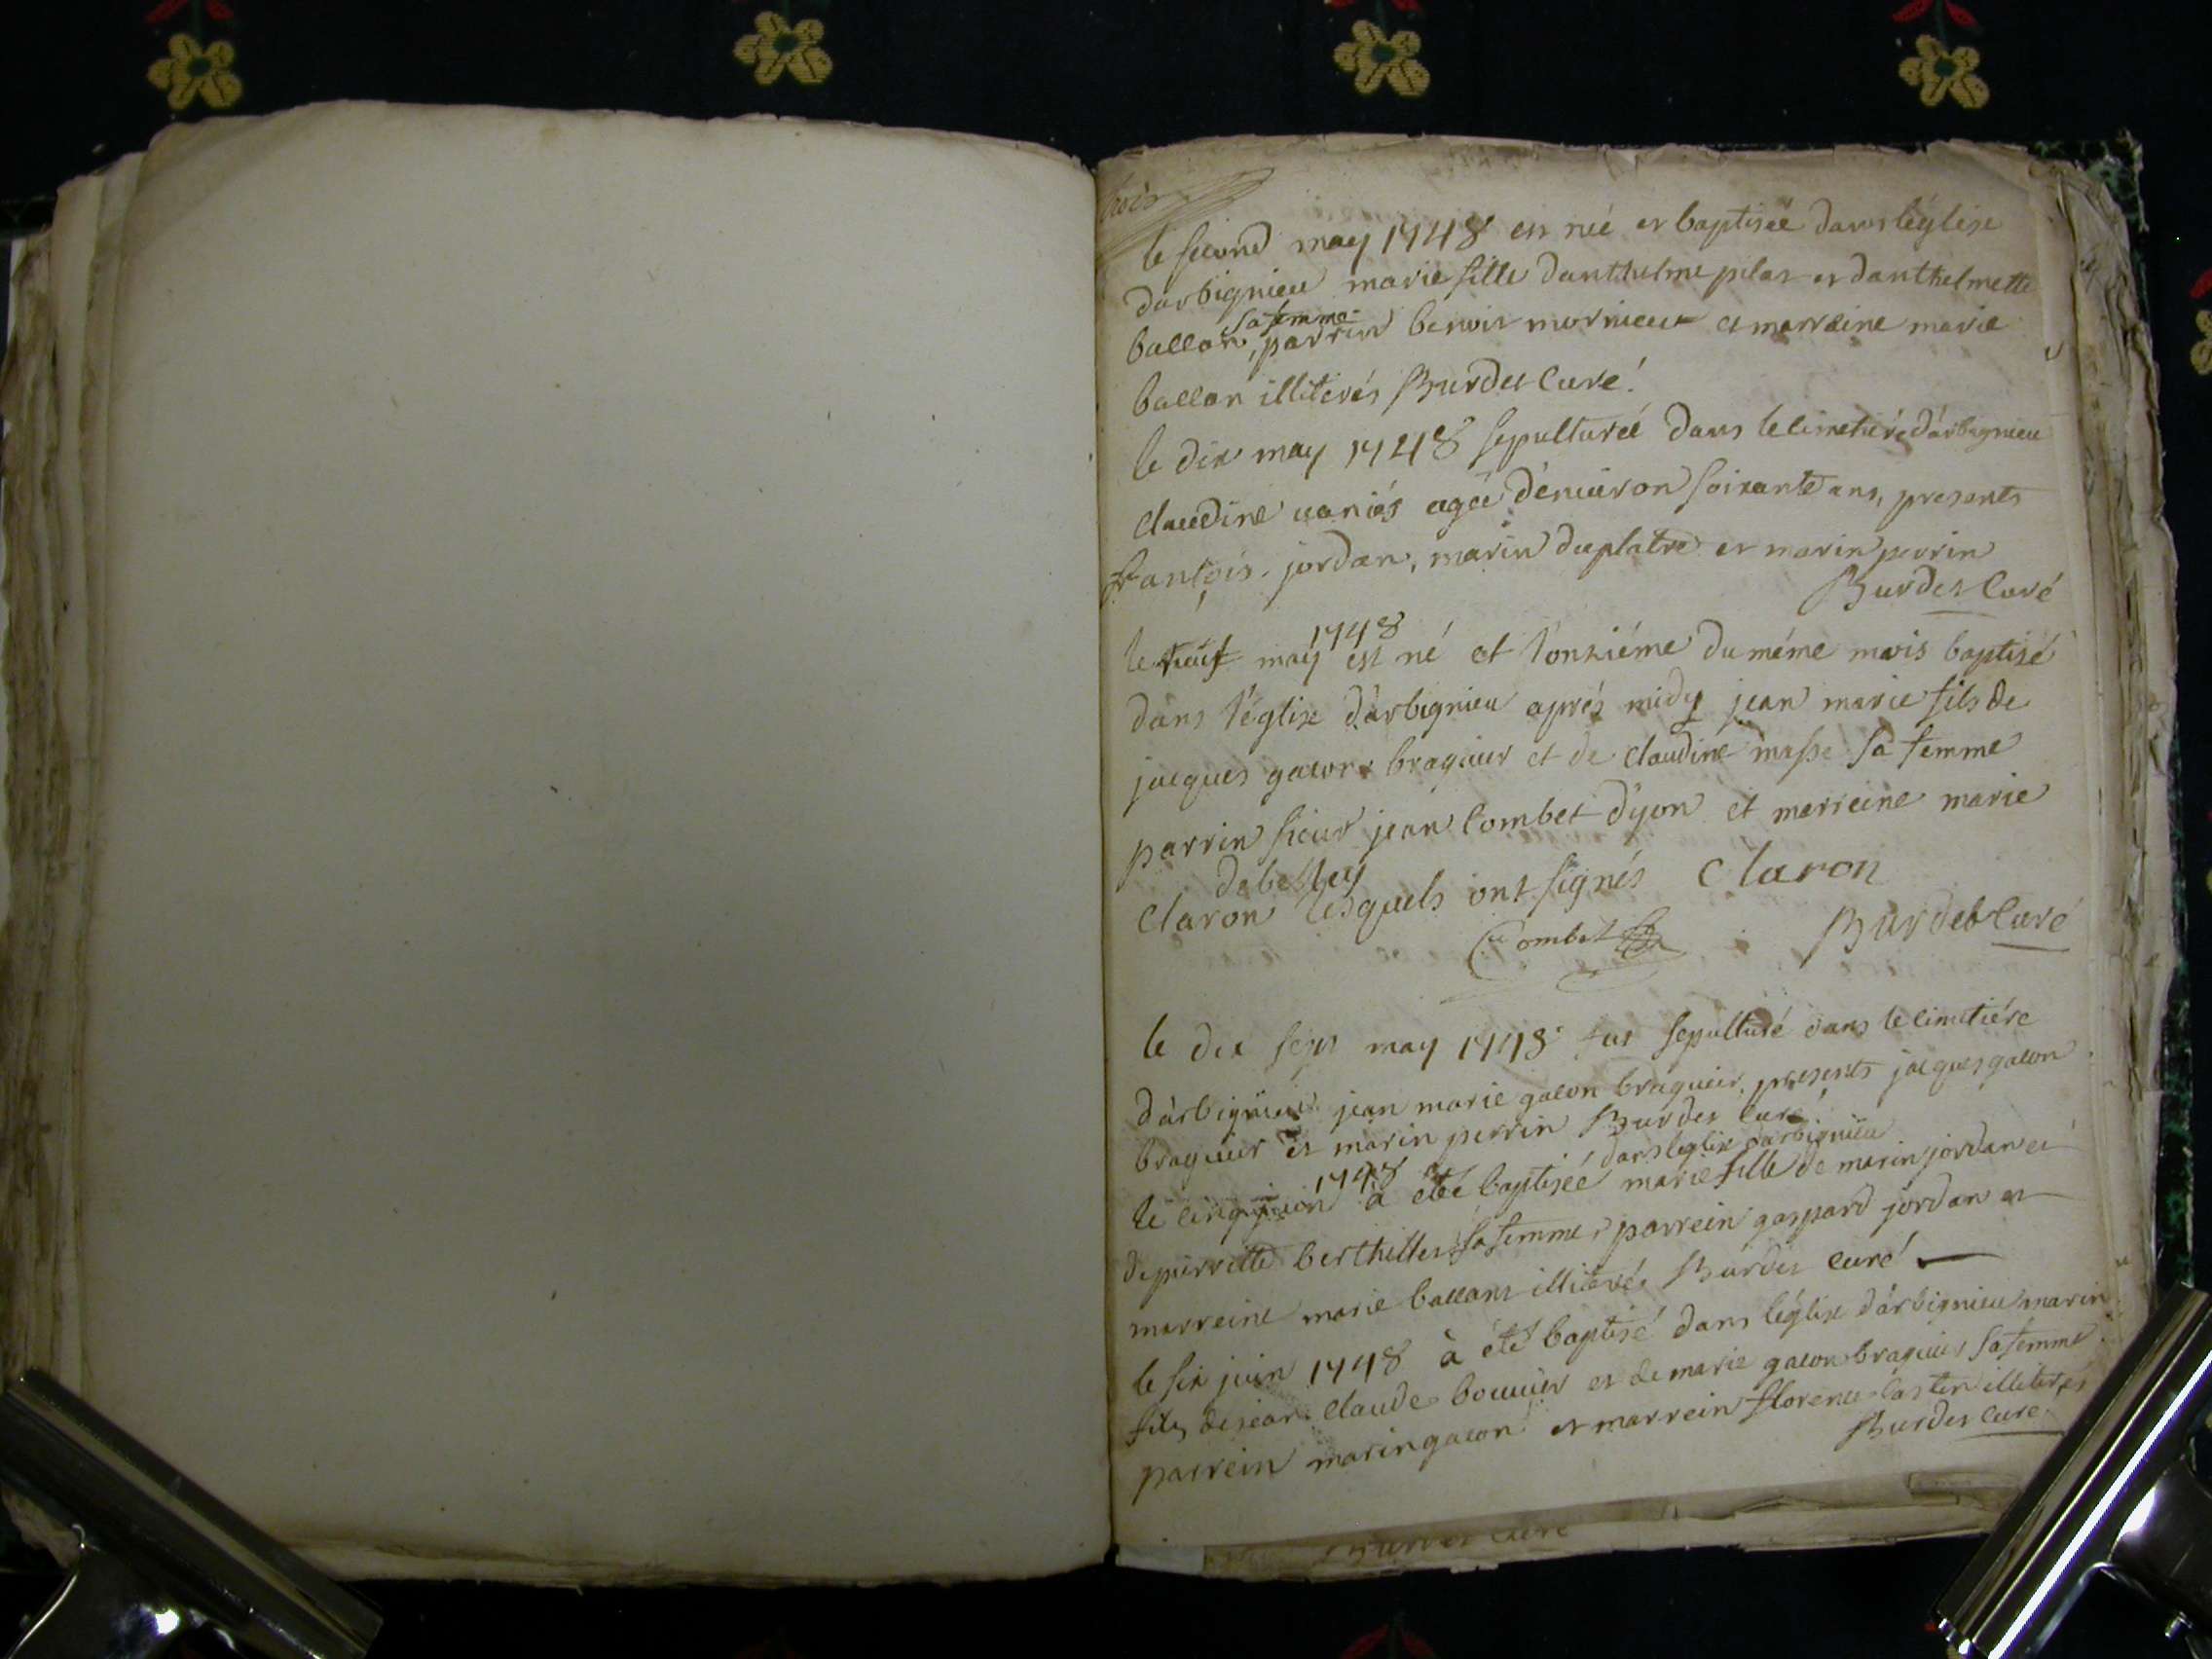 trois
le second may 1748 est née et baptisée dans léglise
darbignieu marie fille danthelme pilat et danthelmette
sa femme
ballon, parrin benoit mornieux et marreine marie
ballon illiterés Burdet Curé.
le dix may 1748 sepulturéé dans le cimetiére dárbignieu
claudine agée dénuiron soixante ans, presents
françois jordan, marin duplatre et marin perrin
Burdet Curé
1748
le neuf may est né et lonziéme du méme mois baptisé
dans l'église d'arbignieu aprés midy jean marie fils de
jacques gacon braguier et de claudine masse sa femme
parrin sieur jean Combet dyon et marreine marie
debelley
Claron lesquels ont signés Claron
Combet Burdet Curé
le dix sept may 1748 fut sepulturé dans le cimetiére
dárbignieu jean marie gacon braguier, presents jacques gacon
braguier et marin perrin Burdet Curé.
1748 dans léglise darbignieu
le cinq juin à été baptiséé marie fille de marin jordan et
de pierrette berthillet sa femme, parrein gaspard jordan et
marreine marie ballans illiterés Burdet curé
le six juin 1748 à été baptisé dans léglise dárbignieu marin
fils de jean claude bouuier et de marie gacon braguier sa femme
parrein marin gacon et marrein florence castin illiterés
Burdet Curé.
Burdet Curé